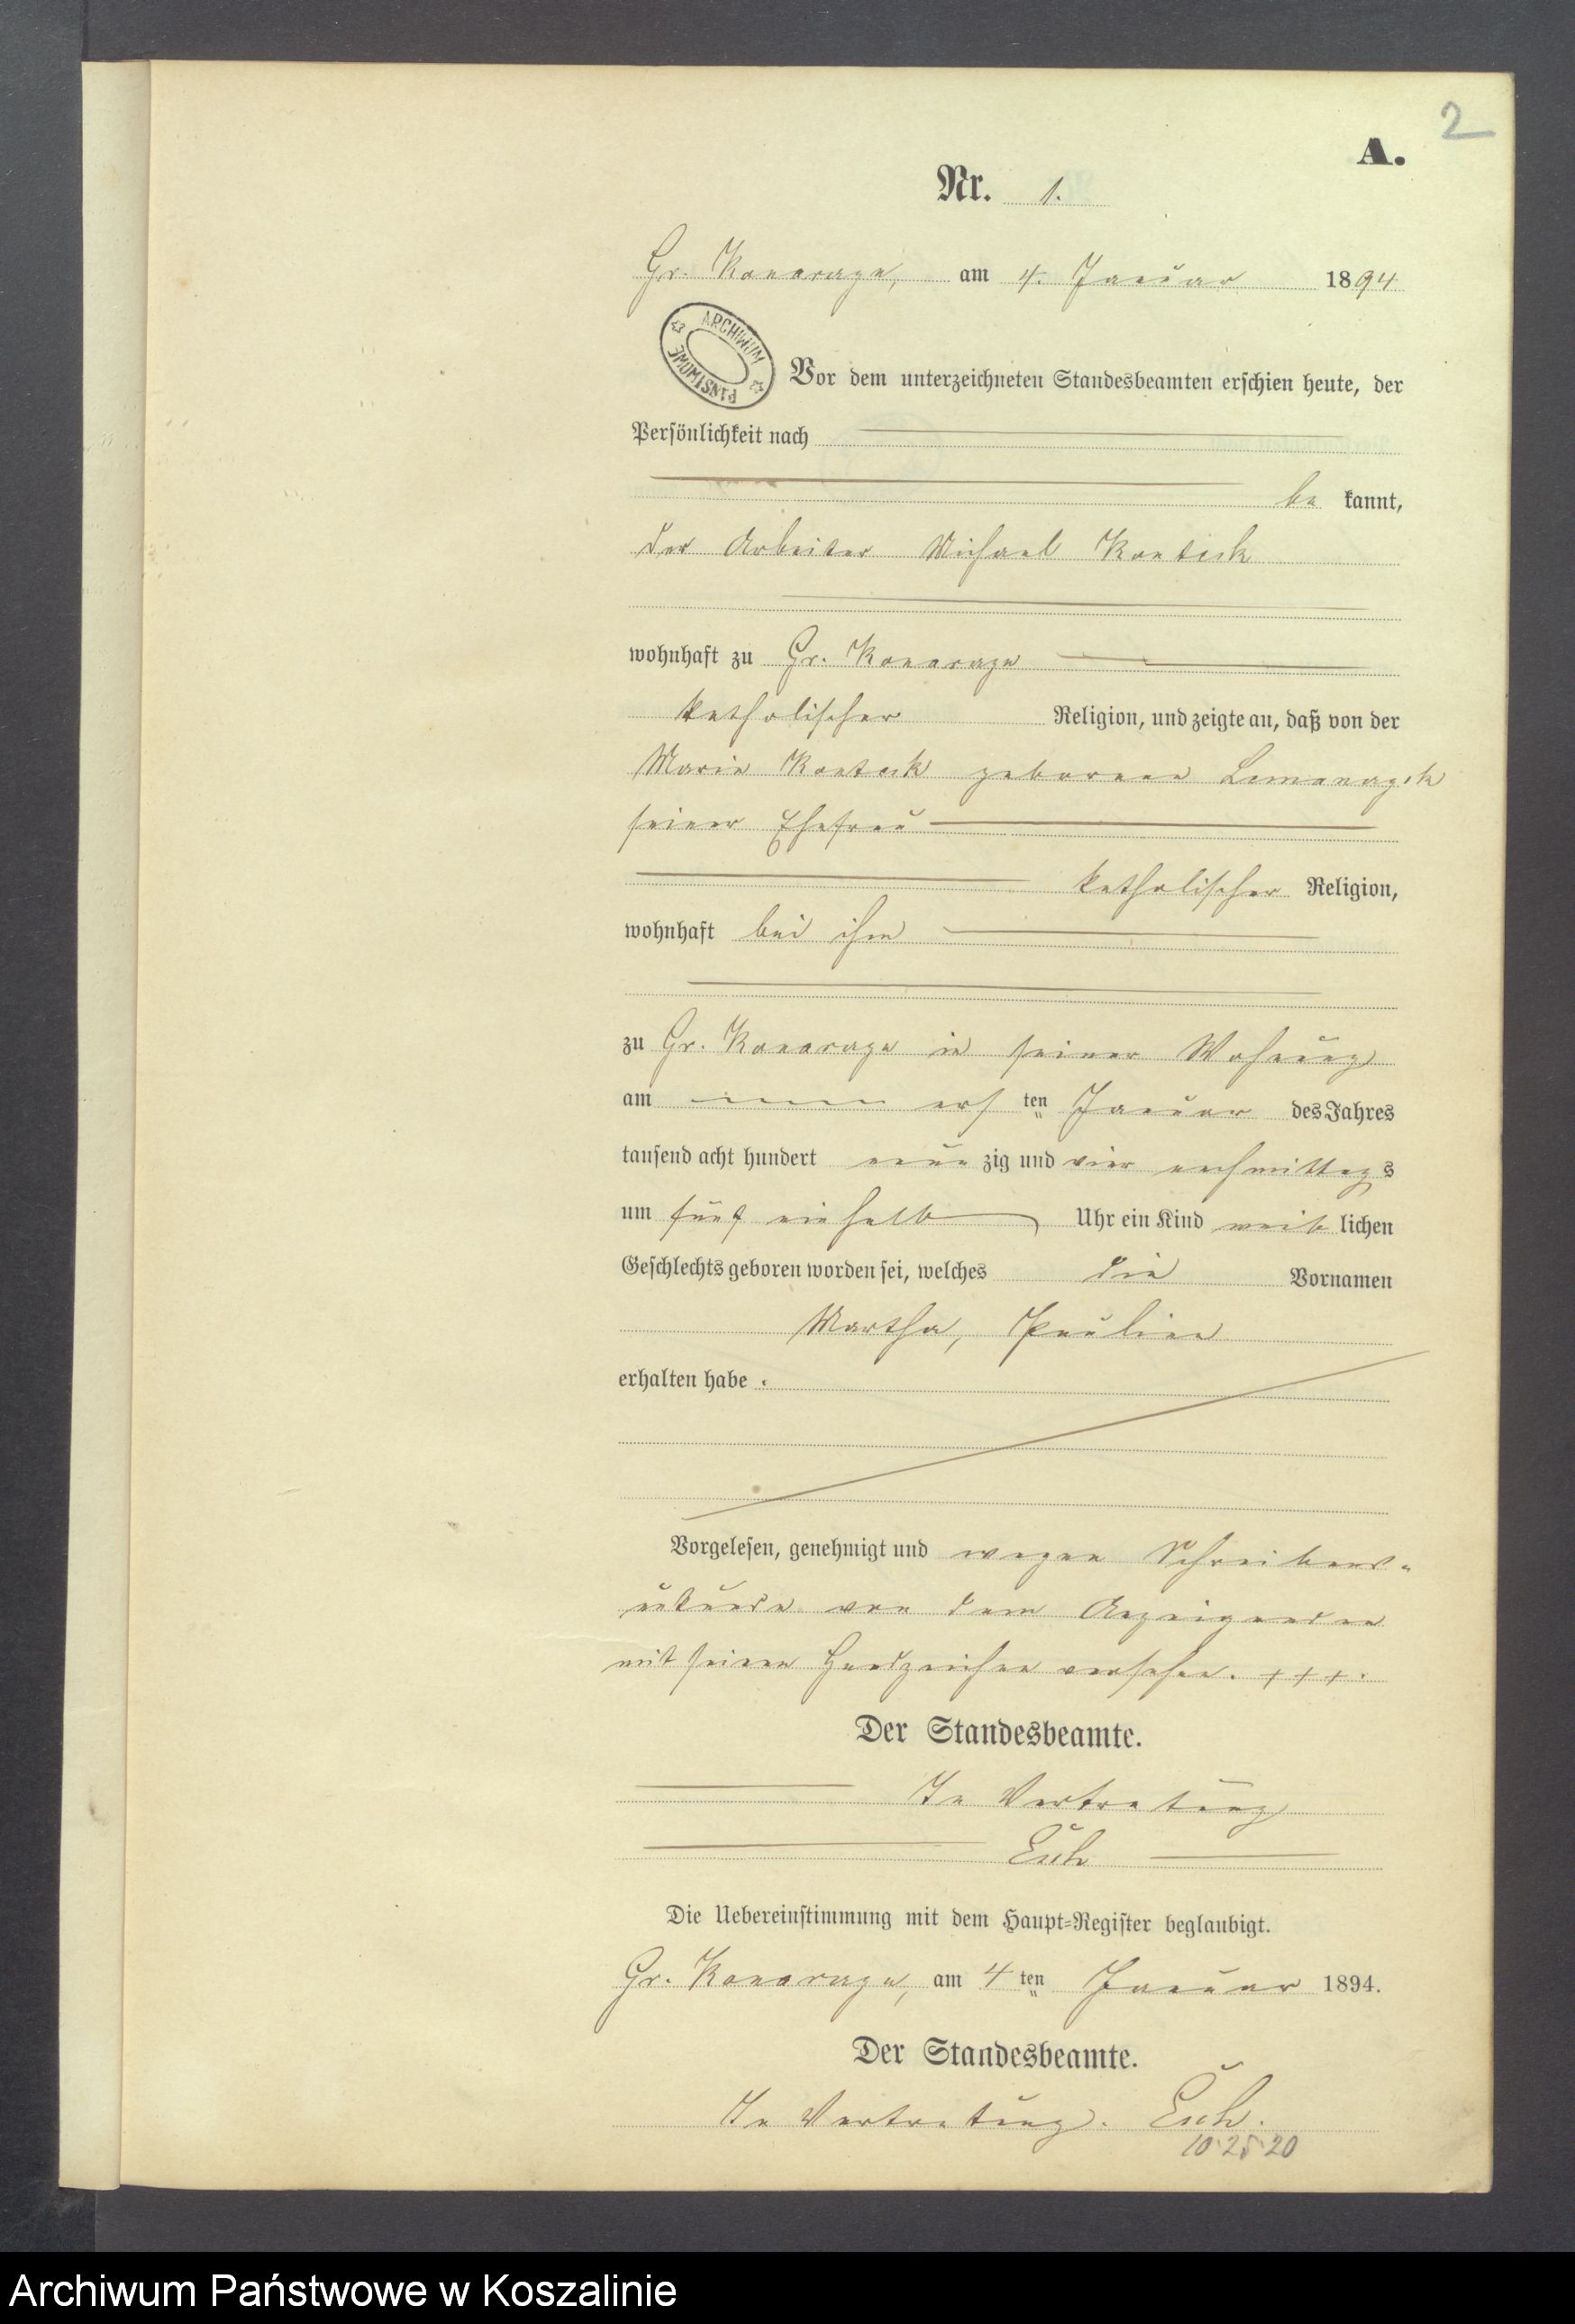 2
A.
Nr. 1.
Gr. Konarzyn, am 4. Januar 1894
ARCHIWUM PAŃSTWOWE
Vor dem unterzeichneten Standesbeamten erschien heute, der
Persönlichkeit nach
be kannt,
der Arbeiter Michael
wohnhaft zu Gr. Konarzyn
katholischer Religion, und zeigte an, daß von der
Marie geborene
seiner Ehefrau
katholischer Religion,
wohnhaft bei ihm
zu Gr. Konarzyn in seiner Wohnung
am ersten Januar des Jahres
tausend acht hundert neun zig und vier nachmittags
um fünf einhalb Uhr ein Kind weib lichen
Geschlechts geboren worden sei, welches die Vornamen
Martha, Pauline
erhalten habe.
Vorgelesen, genehmigt und wegen Schreibens-
unkunde von dem Anzeigenden
mit seinen Handzeichen versehen. +++.
Der Standesbeamte.
In Vertretung
Die Uebereinstimmung mit dem Haupt-Register beglaubigt.
Gr. Konarzyn, am 4 ten Januar 1894.
Der Standesbeamte.
In Vertretung.
10 25 20
Archiwum Państwowe w Koszalinie